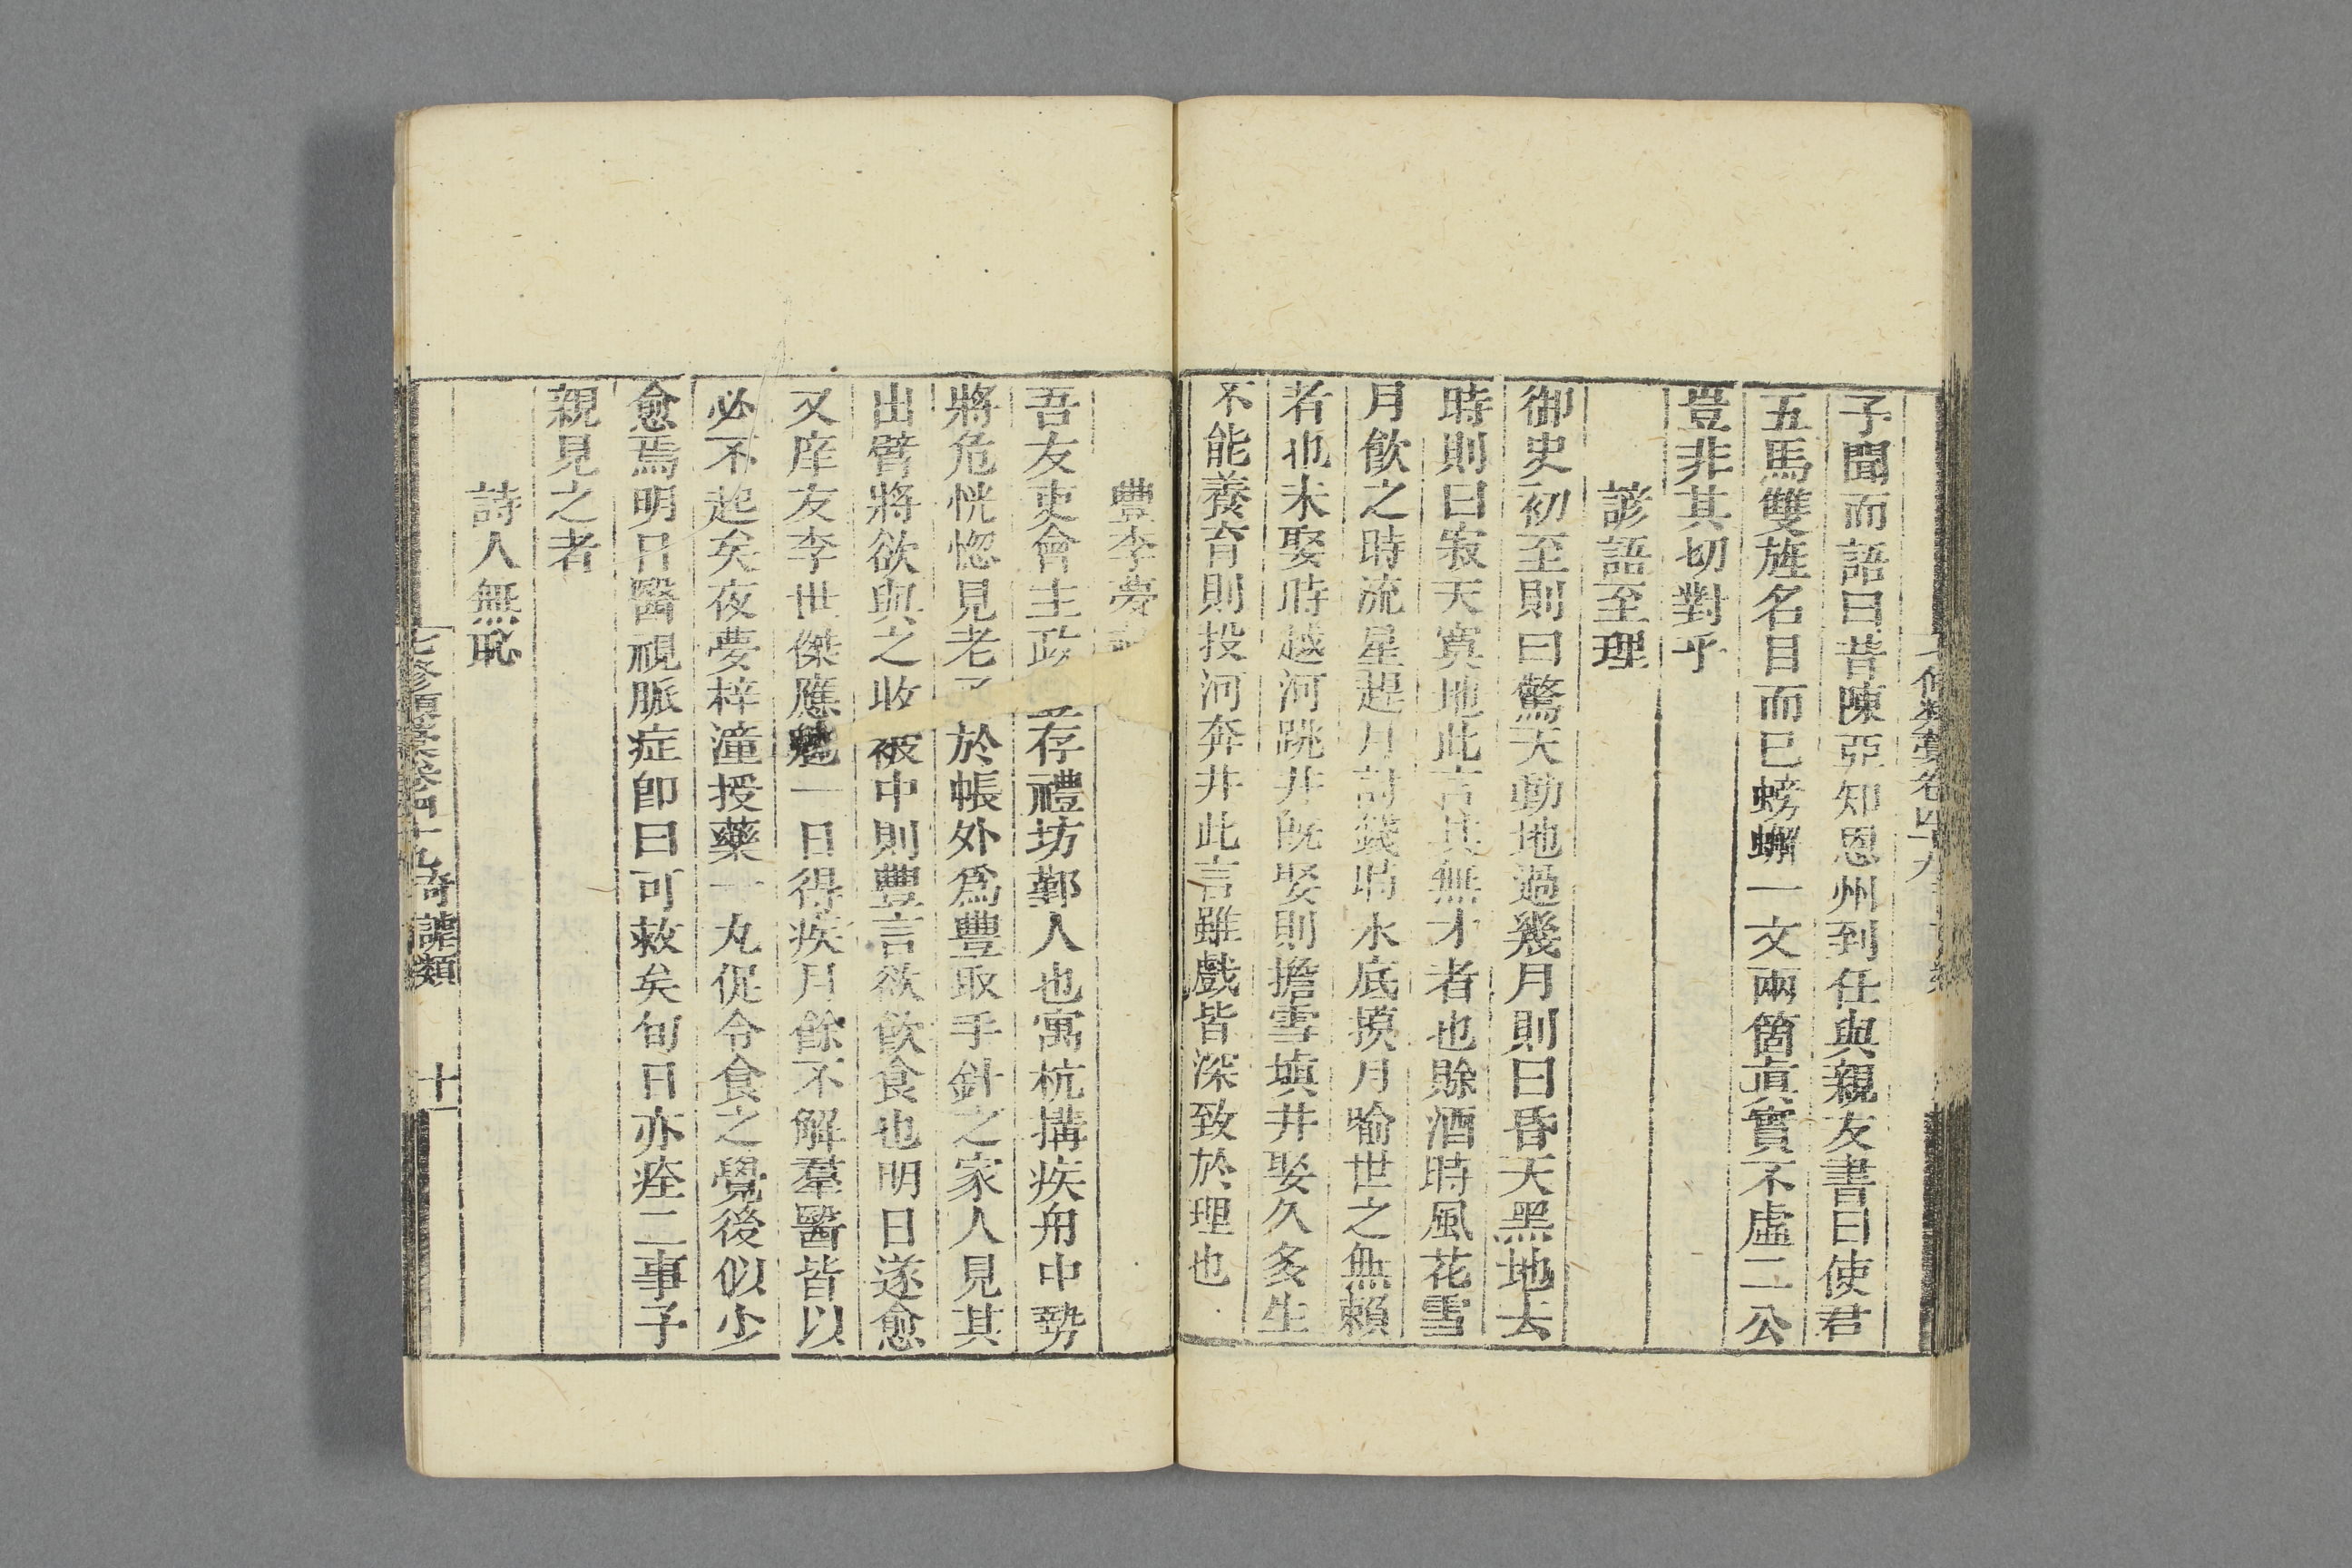 子聞而語曰昔陳亞知恩州到任與親友書曰使君
五馬雙旌名目而已螃蠏一文兩箇眞實不虛二公
豈非其切對乎
諺語至理
御史初至則曰驚天動地過幾月則曰昏天黑地去
時則曰寂天寞地此言其無才者也賖酒時風花雪
月飲之時流星趕月討錢時水底摸月喻世之無賴
者也未娶時越河跳井旣娶則擔雪塡井娶久多生
不能養育則投河奔井此言雖戲皆深致於理也
豐李夢
吾友吏會主政存禮坊鄞人也寓杭搆疾舟中勢
將危恍惚見老於帳外爲豐取手針之家人見其
出臂將欲與之收被中則豐言欲飲食也明日遂愈
又庠友李世傑應魁一日得疾月餘不解羣醫皆以
必不起矣夜夢梓潼授藥一丸促令食之覺後似少
愈焉明日醫視脈症卽曰可救矣旬日亦痊二事子
親見之者
詩人無恥
七修類藁卷四十九奇謔類 十